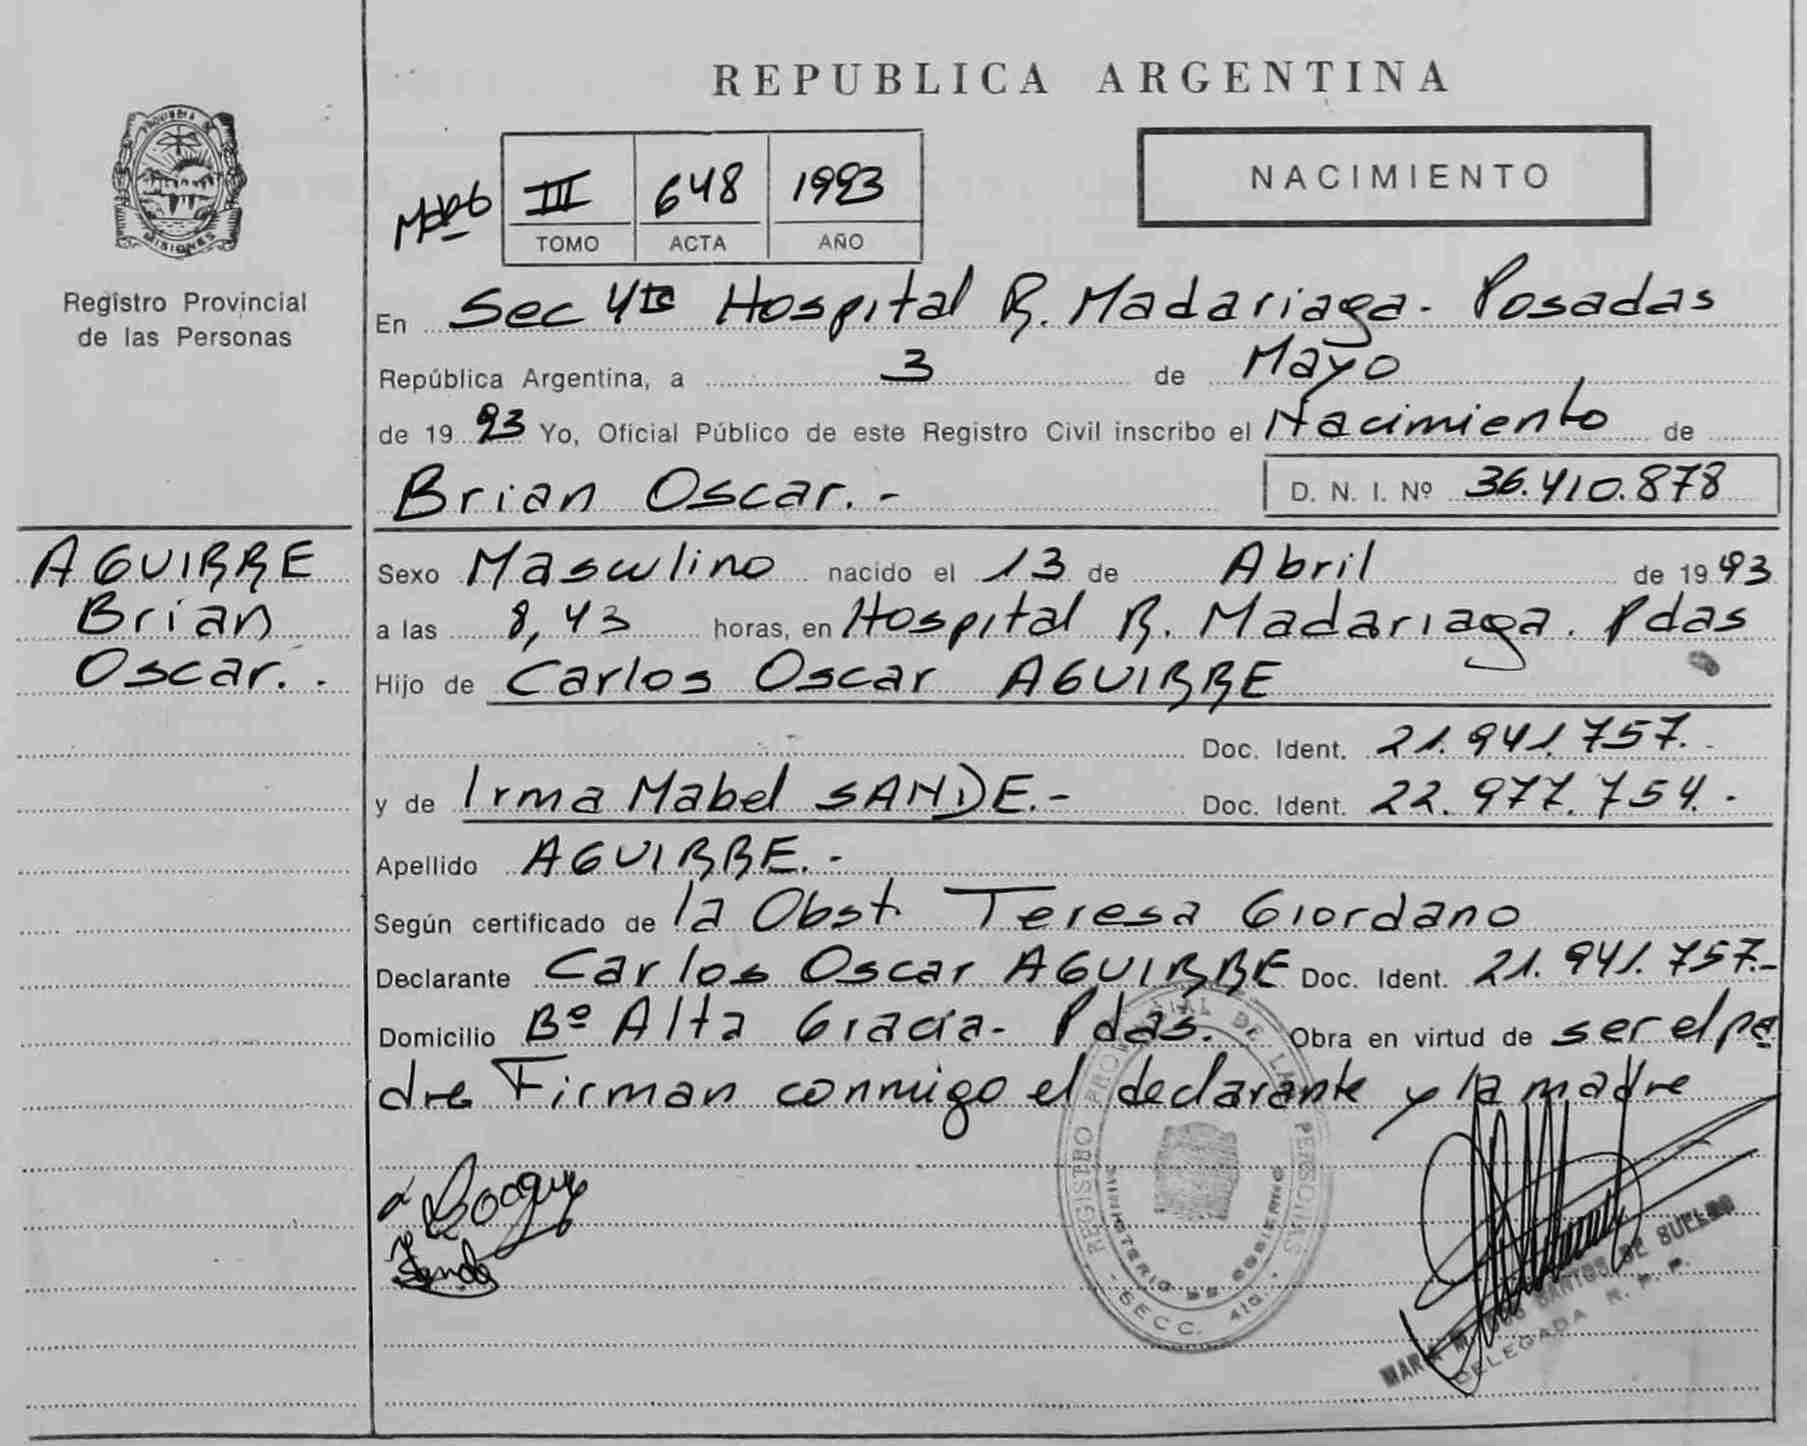 REPUBLICA ARGENTINA
PROVINCIA DE
MISIONES
Registro Provincial
de las Personas
III 648 1993
TOMO ACTA AÑO
NACIMIENTO
En Sec 4ta Hospital R. Madariaga - Posadas
República Argentina, a 3 de Mayo
de 1993 Yo, Oficial Público de este Registro Civil inscribo el Nacimiento de
Brian Oscar.-
D. N. I. Nº 36.410.878
AGUIRRE
Brian
Oscar. -
Sexo Masculino nacido el 13 de Abril de 1993
a las 8,43 horas, en Hospital R. Madariaga. Pdas
Hijo de Carlos Oscar AGUIRRE
Doc. Ident. 21.941.757.-
y de Irma Mabel SANDE.- Doc. Ident. 22.977.754.-
Apellido AGUIRRE.-
Según certificado de la Obst. Teresa Giordano
Declarante Carlos Oscar AGUIRRE Doc. Ident. 21.941.757.-
Domicilio Bº Alta Gracia - Pdas. Obra en virtud de ser el pa
dre Firman conmigo el declarante y la madre
REGISTRO PROVINCIAL DE LAS PERSONAS
MINISTERIO DE GOBIERNO
- SECC. 4ta. -
DELEGADA R. P. P.